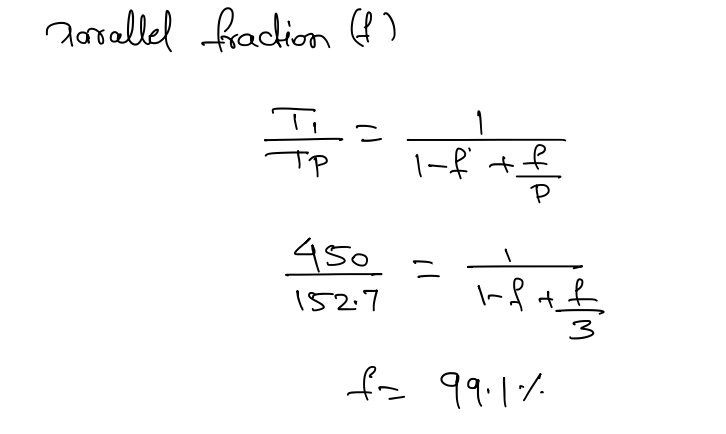 Parallel fraction (f)
T₁/Tp = 1/(1-f + f/p)
450/152.7 = 1/(1-f + f/3)
f = 99.1%